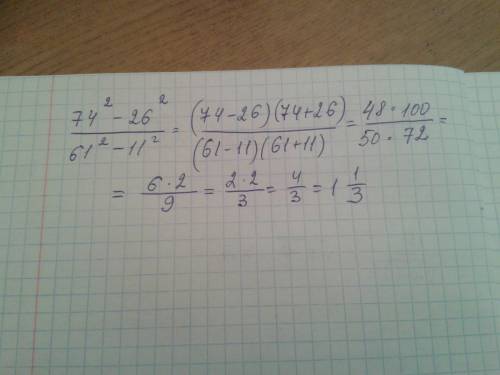 (74² - 26²)/(61² - 11²) = ((74-26)(74+26))/((61-11)(61+11)) = (48·100)/(50·72) =
= (6·2)/9 = (2·2)/3 = 4/3 = 1 1/3